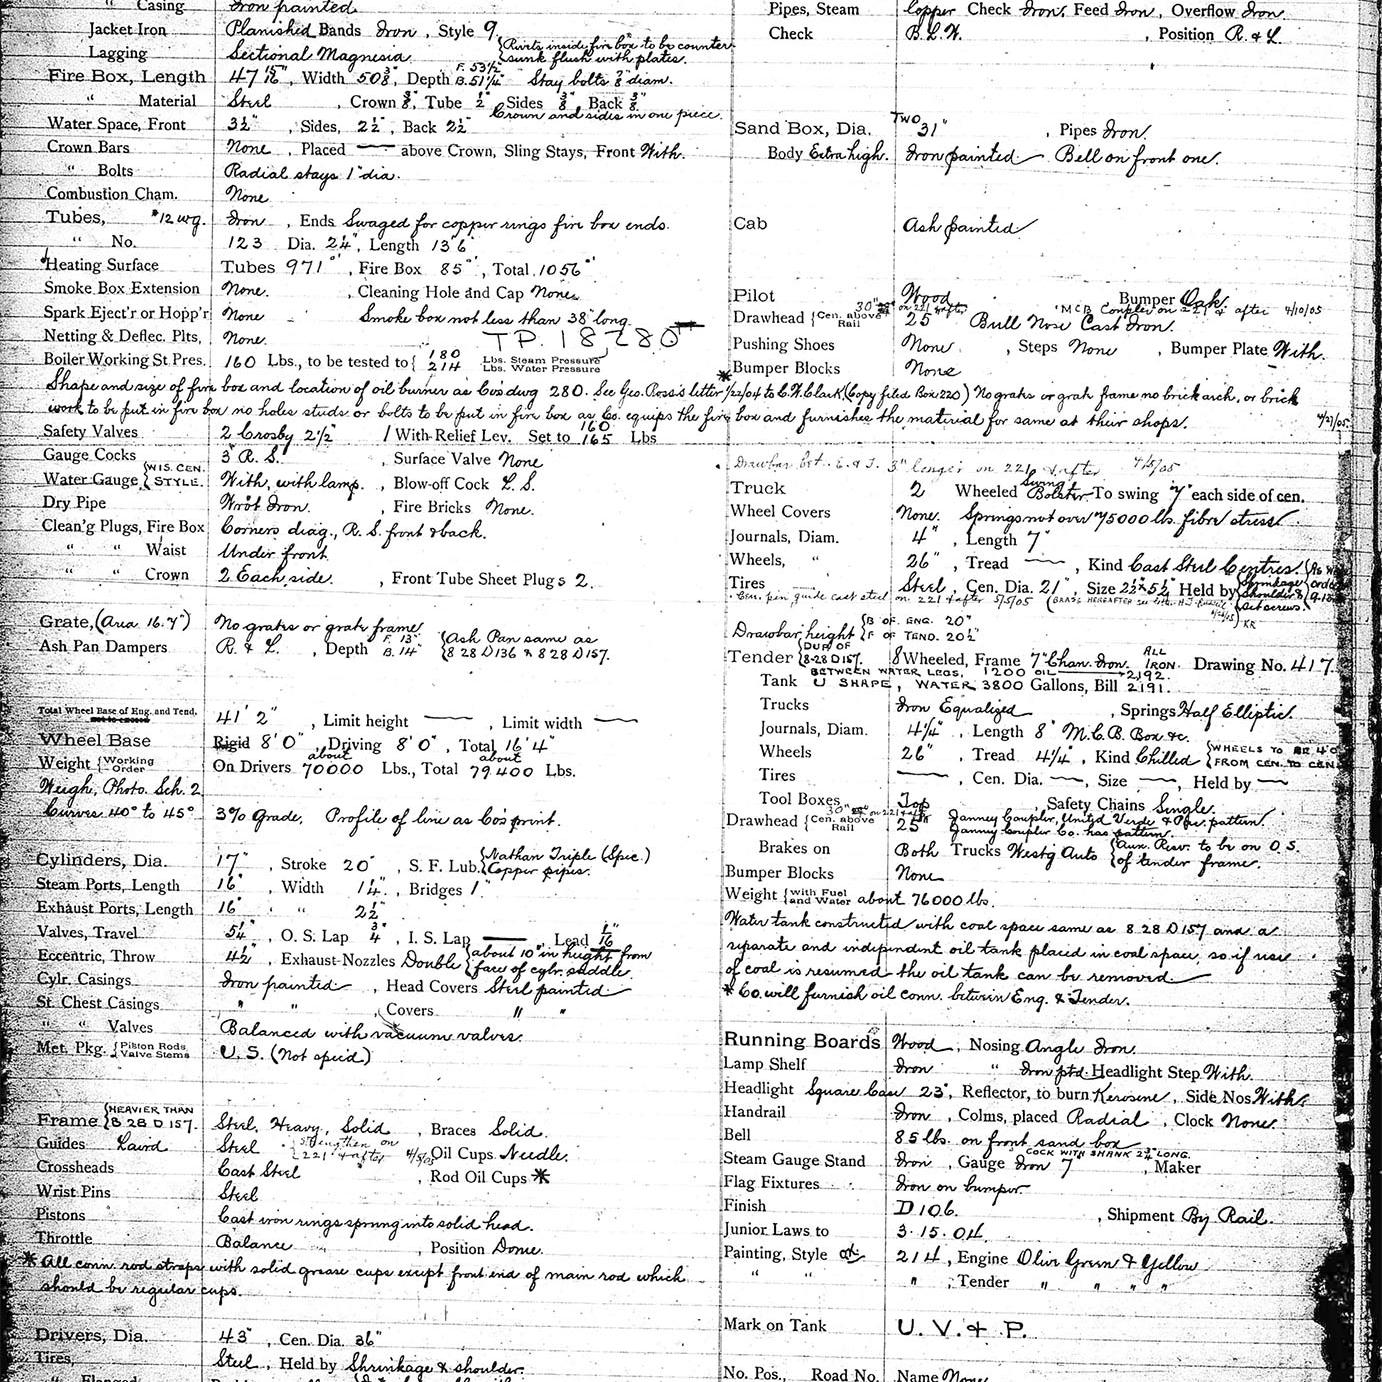 " Casing Iron painted
Jacket Iron Planished Bands Iron, Style 9
Lagging Sectional Magnesia {Rivets inside fire box to be counter sunk flush with plates.
Fire Box, Length 47 15/16", Width 50 3/8", Depth F. 53 1/2" B. 51 1/4" Stay bolts 7/8" diam.
" Material Steel, Crown 3/8", Tube 1/2", Sides 3/8", Back 3/8"
Crown and sides in one piece.
Water Space, Front 3 1/2", Sides, 2 1/2", Back 2 1/2"
Crown Bars None, Placed — above Crown, Sling Stays, Front With.
" Bolts Radial stays 1" dia.
Combustion Cham. None
Tubes, #12 wg. Iron, Ends Swaged for copper rings fire box ends.
" No. 123 Dia. 2 1/4", Length 13' 6"
Heating Surface Tubes 971 □', Fire Box 85 □', Total 1056 □'
Smoke Box Extension None., Cleaning Hole and Cap None
Spark Eject'r or Hopp'r None Smoke box not less than 38" long.
Netting & Deflec. Plts, None. T.P. 18280
Boiler Working St. Pres. 160 Lbs., to be tested to { 180 Lbs. Steam Pressure 214 Lbs. Water Pressure
Shape and size of fire box and location of oil burner as Co's dwg 280. See Geo. Ross's letter 1/22/04 to C.W. Clark (Copy filed Box 220) No grates or grate frame no brick arch, or brick
work to be put in fire box no holes studs or bolts to be put in fire box as Co. equips the fire box and furnishes the material for same at their shops. 4/27/05
Safety Valves 2 Crosby 2 1/2" 1 With Relief Lev. Set to 160 165 Lbs
Gauge Cocks 3 R. S., Surface Valve None
Water Gauge {WIS. CEN. STYLE. With, with lamp., Blow-off Cock L. S.
Dry Pipe Wro't Iron., Fire Bricks None.
Clean'g Plugs, Fire Box Corners diag., R. S. front & back.
" " Waist Under front
" " Crown 2 Each side., Front Tube Sheet Plugs 2.
Grate, (Area 16.7") No grates or grate frame
Ash Pan Dampers R. & L., Depth F. 13" B. 14" {Ash Pan same as 8 28 D136 & 8 28 D157.
Total Wheel Base of Eng. and Tend. not to exceed 41' 2", Limit height —, Limit width —
Wheel Base Rigid 8' 0", Driving 8' 0", Total 16' 4"
Weight {Working Order On Drivers about 70000 Lbs., Total about 79400 Lbs.
Weigh, Photo. Sch. 2
Curves 40° to 45° 3% Grade. Profile of line as Co's print.
Cylinders, Dia. 17", Stroke 20", S. F. Lub. {Nathan Triple (Spec.) Copper pipes.
Steam Ports, Length 16", Width 1 1/4", Bridges 1"
Exhaust Ports, Length 16" " " 2 1/2"
Valves, Travel 5 1/4", O. S. Lap 3/4", I. S. Lap —, Lead 1/16"
Eccentric, Throw 4 1/2", Exhaust Nozzles Double {about 10" in height from face of cylr. saddle.
Cylr. Casings Iron painted, Head Covers Steel painted
St. Chest Casings " ", Covers " "
" " Valves Balanced with vacuum valves.
Met. Pkg. {Piston Rods Valve Stems U. S. (Not spec'd)
Frame {HEAVIER THAN 8 28 D 157. Steel, Heavy, Solid, Braces Solid.
Guides Laird Steel {Strengthen on 221 & after 4/5/05, Oil Cups Needle.
Crossheads Cast Steel, Rod Oil Cups *
Wrist Pins Steel
Pistons Cast iron rings sprung into solid head.
Throttle Balance, Position Dome.
* All conn. rod straps with solid grease cups except front end of main rod which
should be regular cups.
Drivers, Dia. 43", Cen. Dia. 36"
Tires, Steel, Held by Shrinkage & shoulder.
" Flanged
Pipes, Steam Copper Check Iron. Feed Iron, Overflow Iron.
Check B. L. W., Position R. & L.
Sand Box, Dia. TWO 31", Pipes Iron.
Body Extra high. Iron painted Bell on front one.
Cab Ash painted
Pilot Wood Bumper Oak.
Drawhead {Cen. above Rail 30" on 221 & after 25" Bull Nose Cast Iron. "MCB Coupler on 221 & after 4/10/05
Pushing Shoes None., Steps None, Bumper Plate With.
Bumper Blocks None
Drawbar bet. E. & T. 3" longer on 221 & after 4/5/05
Truck 2 Wheeled Swing Bolster. To swing "7" each side of cen.
Wheel Covers None. Springs not over 75000 lbs. fibre stress
Journals, Diam. 4", Length 7"
Wheels, " 26", Tread —, Kind Cast Steel Centres.
Tires Steel, Cen. Dia. 21", Size 2 1/2" x 5 1/2" Held by {Shrinkage shoulder & set screws.
Cen. pin guide cast steel on 221 & after 5/5/05
Drawbar height {B OF. ENG. 20" F OF TEND. 20 1/2"
Tender {DUP. OF 8-28 D157. 8 Wheeled, Frame 7" Chan. Iron. ALL IRON. Drawing No. 417.
BETWEEN WATER LEGS, 1200 OIL 2192.
Tank U SHAPE, WATER 3800 Gallons, Bill 2191.
Trucks Iron Equalized, Springs Half Elliptic.
Journals, Diam. 4 1/4", Length 8" M.C.B. Box &c.
Wheels 26", Tread 4 1/4", Kind Chilled {WHEELS TO BE 4'0" FROM CEN. TO CEN.
Tires —, Cen. Dia. —, Size —, Held by —
Tool Boxes Top, Safety Chains Single.
Drawhead {Cen. above Rail 30" on 221 & aft. 25" Janney Coupler, United Verde & Pac. pattern. Janney Coupler Co. has pattern.
Brakes on Both Trucks Westg Auto {Aux. Resv. to be on O. S. of tender frame.
Bumper Blocks None
Weight {with Fuel and Water about 76000 lbs.
Water tank constructed with coal space same as 8 28 D157 and a
separate and independent oil tank placed in coal space, so if use
of coal is resumed the oil tank can be removed
* Co. will furnish oil conn. between Eng. & Tender.
Running Boards Wood, Nosing Angle Iron.
Lamp Shelf Iron " Iron ptd. Headlight Step With.
Headlight Square Case 23", Reflector, to burn Kerosene, Side Nos With.
Handrail Iron, Colms, placed Radial, Clock None.
Bell 85 lbs. on front sand box
Steam Gauge Stand Iron, Gauge Iron 7" COCK WITH SHANK 2 3/4" LONG., Maker
Flag Fixtures Iron on bumper.
Finish D 106., Shipment By Rail.
Junior Laws to 3. 15. 04.
Painting, Style 214, Engine Olive Green & Yellow
" " ", Tender " " " "
Mark on Tank U. V. & P.
No. Pos., Road No. Name None